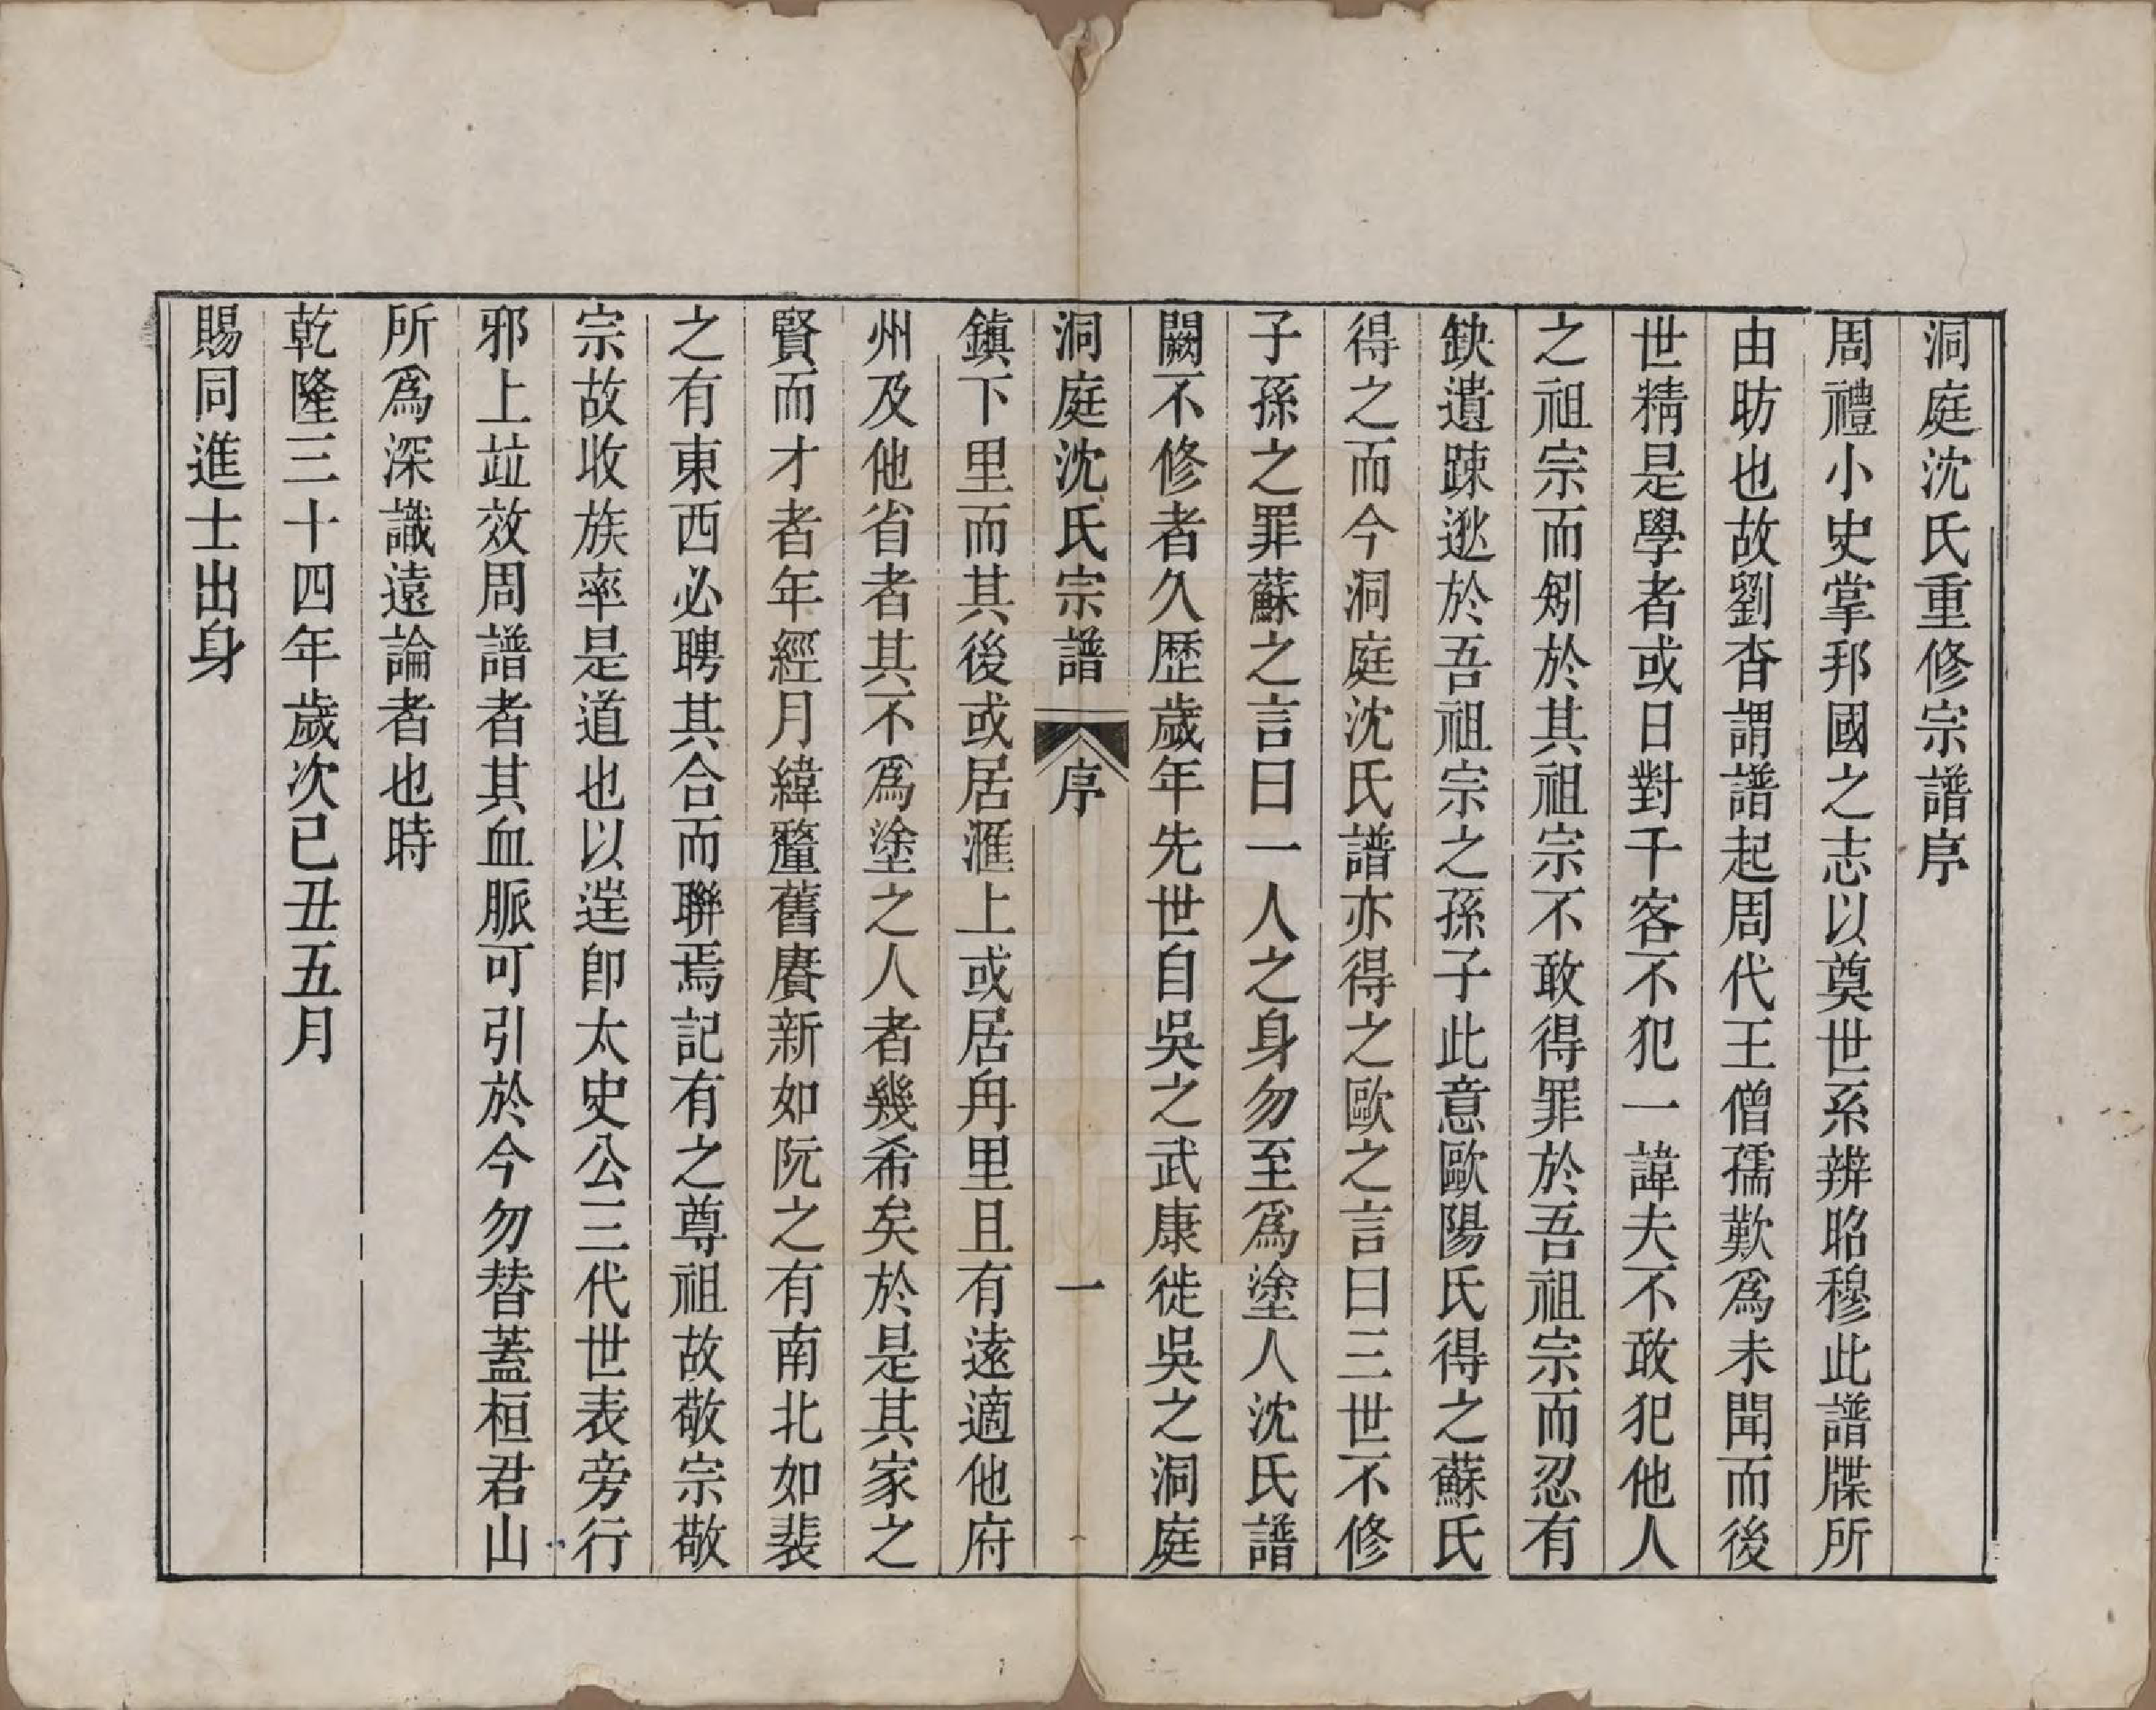 洞庭沈氏重修宗譜序
周禮小史掌邦國之志以奠世系辨昭穆此譜牒所
由昉也故劉杳謂譜起周代王僧孺歎爲未聞而後
世精是學者或日對千客不犯一諱夫不敢犯他人
之祖宗而矧於其祖宗不敢得罪於吾祖宗而忍有
缺遺踈逖於吾祖宗之孫子此意歐陽氏得之蘇氏
得之而今洞庭沈氏譜亦得之歐之言曰三世不修
子孫之罪蘇之言曰一人之身勿至爲塗人沈氏譜
闕不修者久歷歲年先世自吳之武康徙吳之洞庭
洞庭沈氏宗譜 序 一
鎮下里而其後或居滙上或居舟里且有逺適他府
州及他省者其不爲塗之人者幾希矣於是其家之
賢而才者年經月緯釐舊賡新如阮之有南北如裴
之有東西必聘其合而聯焉記有之尊祖故敬宗敬
宗故收族率是道也以遅卽太史公三代世表旁行
邪上竝效周譜者其血脈可引於今勿替蓋桓君山
所爲深識遠論者也時
乾隆三十四年歲次己丑五月
賜同進士出身